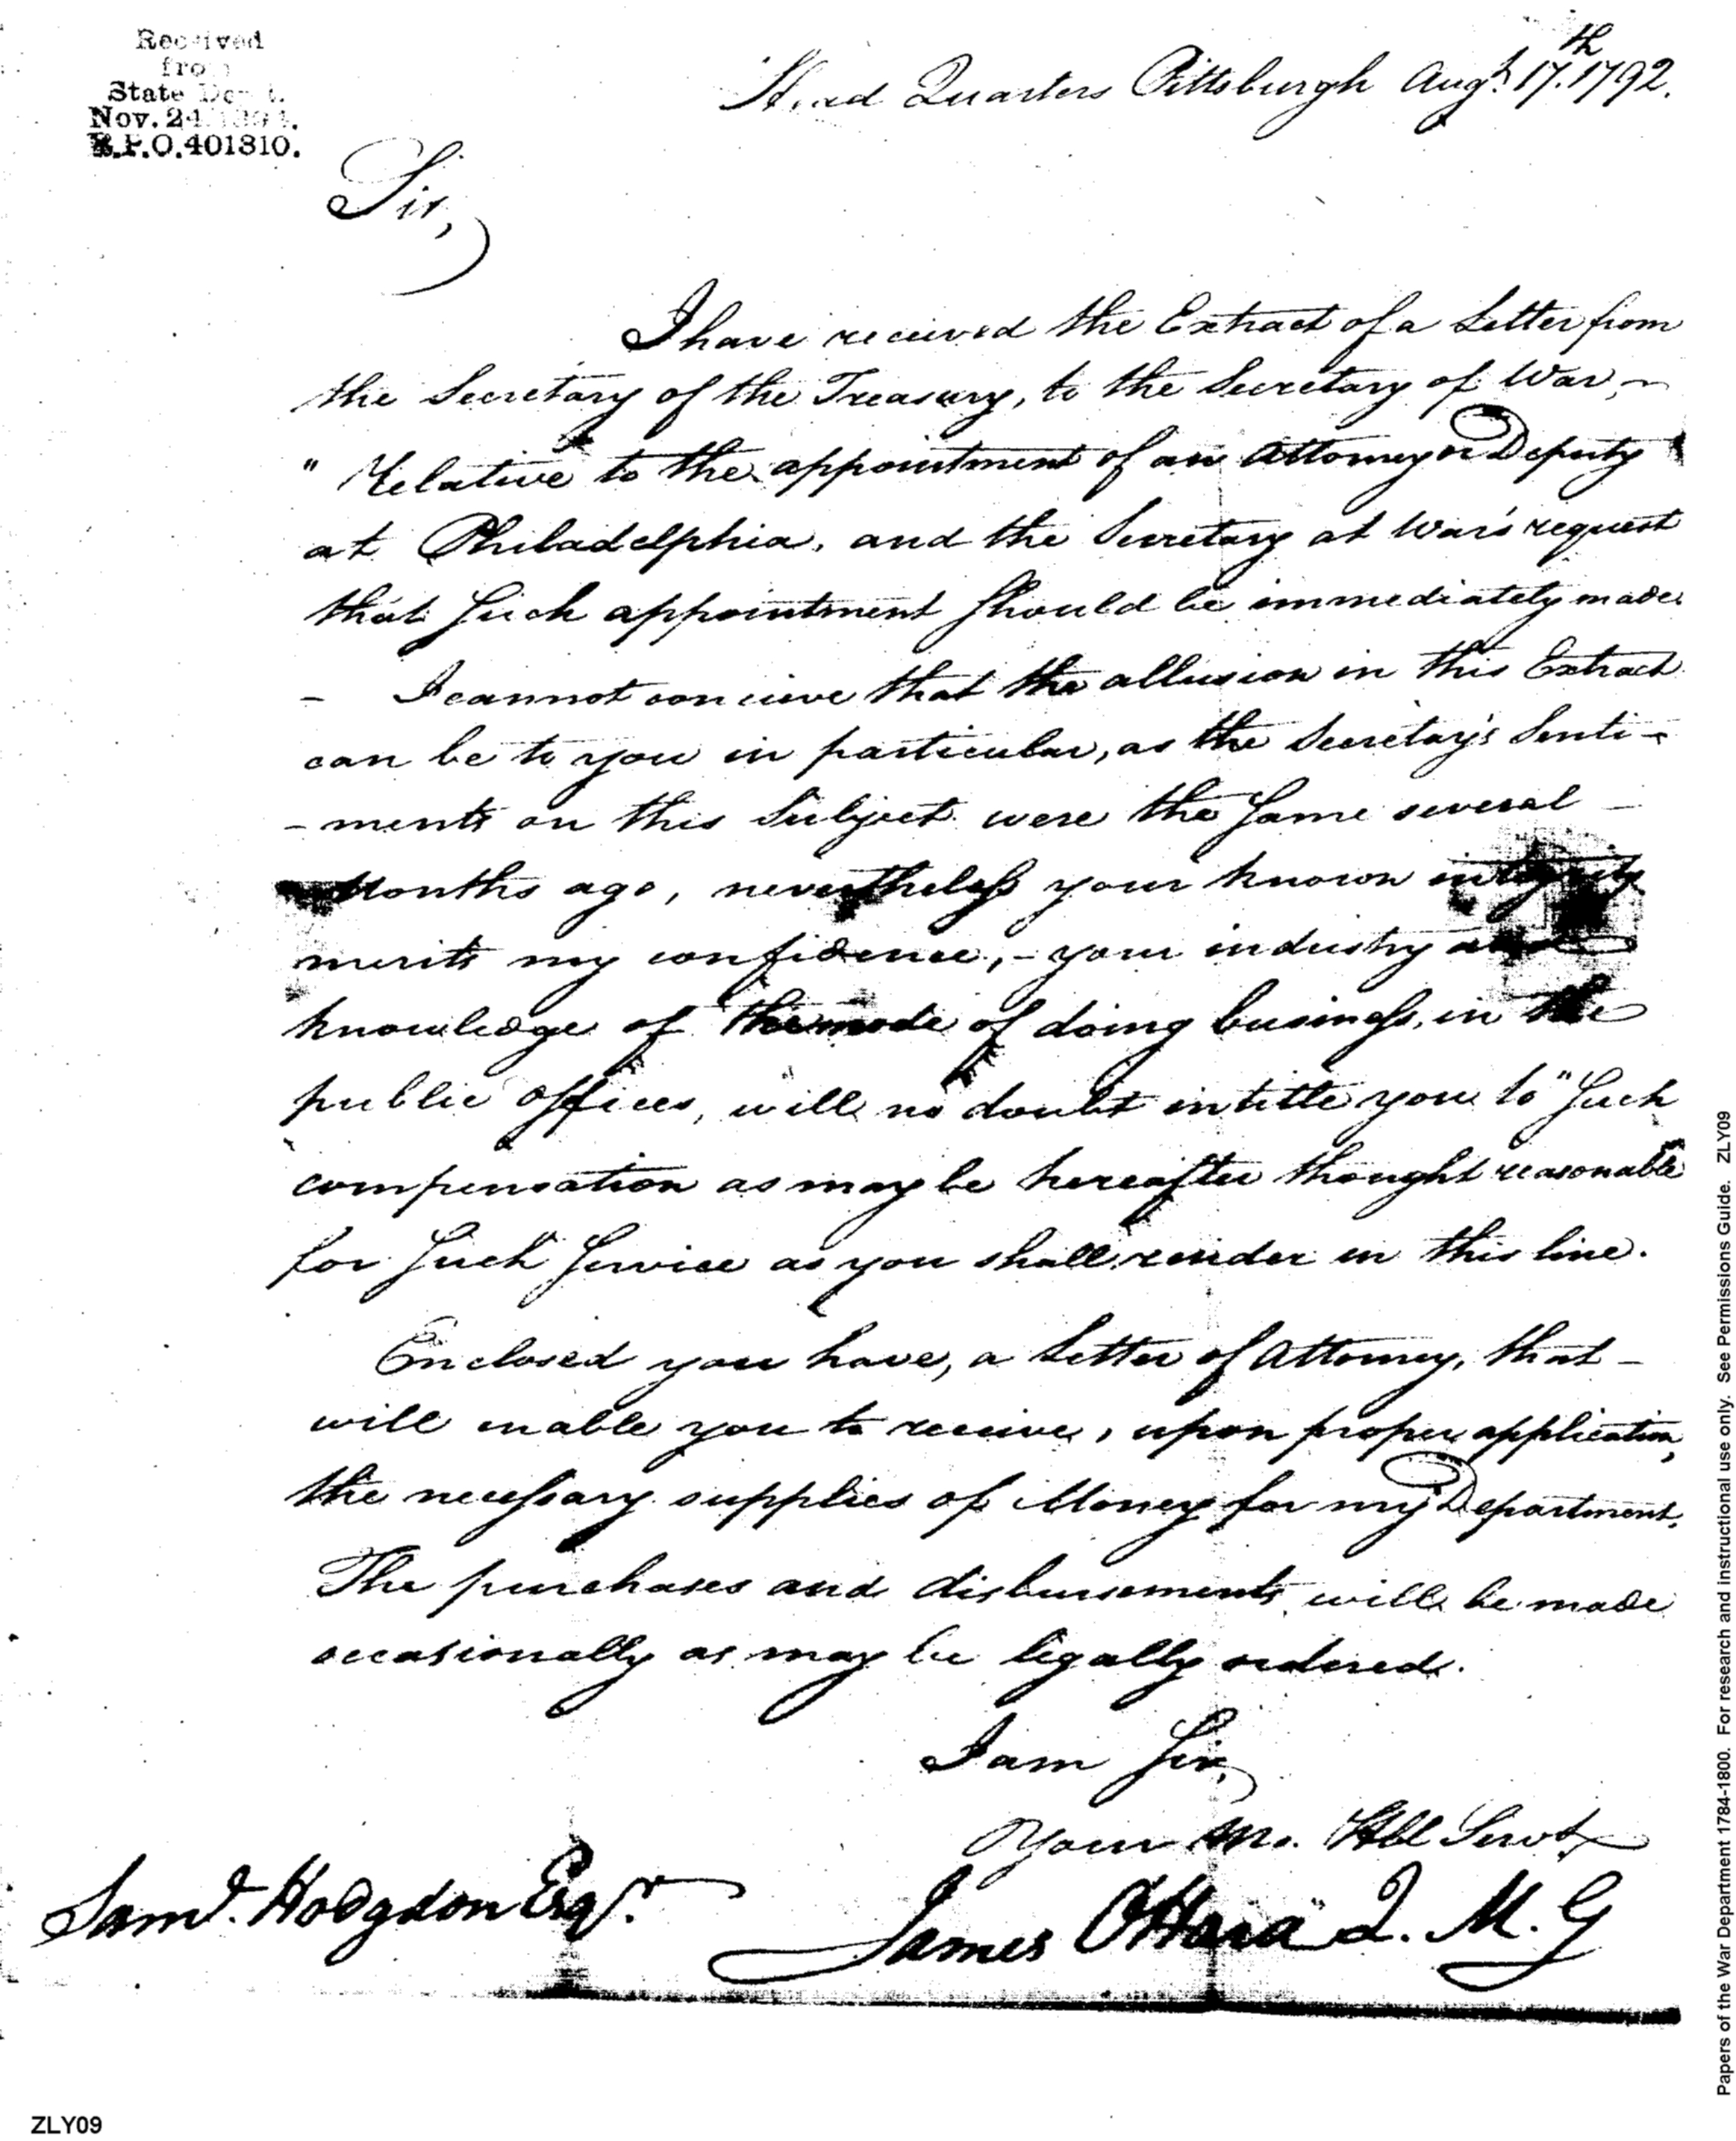 Received
from
State Dept.
Nov. 24 1894.
R.P.O. 401310.
Head Quarters Pittsburgh Augt. 17th. 1792.
Sir,
I have received the Extract of a Letter from
the Secretary of the Treasury, to the Secretary of War,
" Relative to the appointment of an Attorney or Deputy
at Philadelphia, and the Secretary at War's request
that Such appointment Should be immediately made.
- I cannot concieve that the allusion in this Extract
can be to you in particular, as the Secretay's Senti-
-ments on this Subject were the Same several
Months ago, nevertheless your known integrity
merits my confidence, - your industry and
knowledge of the mode of doing business, in the
public offices, will no doubt intitle you to "Such
compensation as may be hereafter thought reasonable
for Such Service as you shall render in this line.
Enclosed you have, a Letter of Attorney, that -
will enable you to receive, upon proper application,
the necessary supplies of Money for my Department.
The purchases and disbursements will be made
occasionally as may be legally ordered.
I am Sir,
Your Mo. Hbl Servt
Saml. Hodgdon Esqr.
James OHara Q. M. G
ZLY09
Papers of the War Department 1784-1800. For research and instructional use only. See Permissions Guide. ZLY09